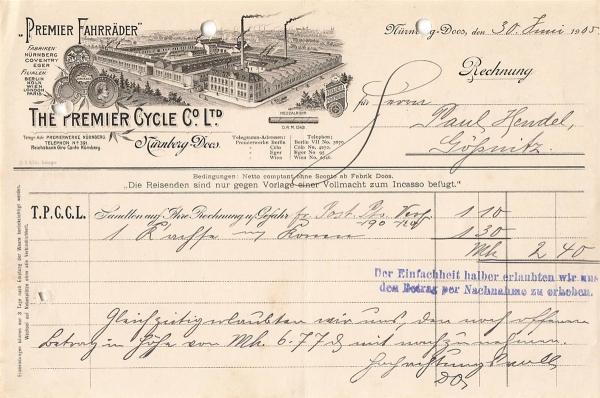 "PREMIER FAHRRÄDER"
FABRIKEN:
NÜRNBERG
COVENTRY
EGER
FILIALEN
BERLIN
KÖLN
WIEN
LONDON
PARIS.
THE PREMIER CYCLE CO LTD.
Telegr. Adr: PREMIERWERKE NÜRNBERG
TELEPHON No 391
Reichsbank Giro Conto Nürnberg
Nürnberg-Doos.
Telegramm-Adressen:
Premierwerke Berlin
Cöln
Eger
Wien
Telephon:
Berlin VII No.
Cöln No.
Eger No.
Wien No.
Nürnberg-Doos, den 30. Juni 1905.
Rechnung
für Herrn
Paul Hendel,
Gößnitz.
Bedingungen: Netto comptant ohne Sconto ab Fabrik Doos.
"Die Reisenden sind nur gegen Vorlage einer Vollmacht zum Incasso befugt."
T.P.C.C.L. Sandten auf Ihre Rechnung u. Gefahr per Post
1 10
1
1 30
Mk 2 40
Der Einfachheit halber erlaubten wir uns
den Betrag per Nachnahme zu erheben.
Gleichzeitig erlaubten wir uns, den noch offenen
Betrag in Höhe von Mk. 6.77 mit nachzunehmen.
Hochachtungsvoll
D.O.